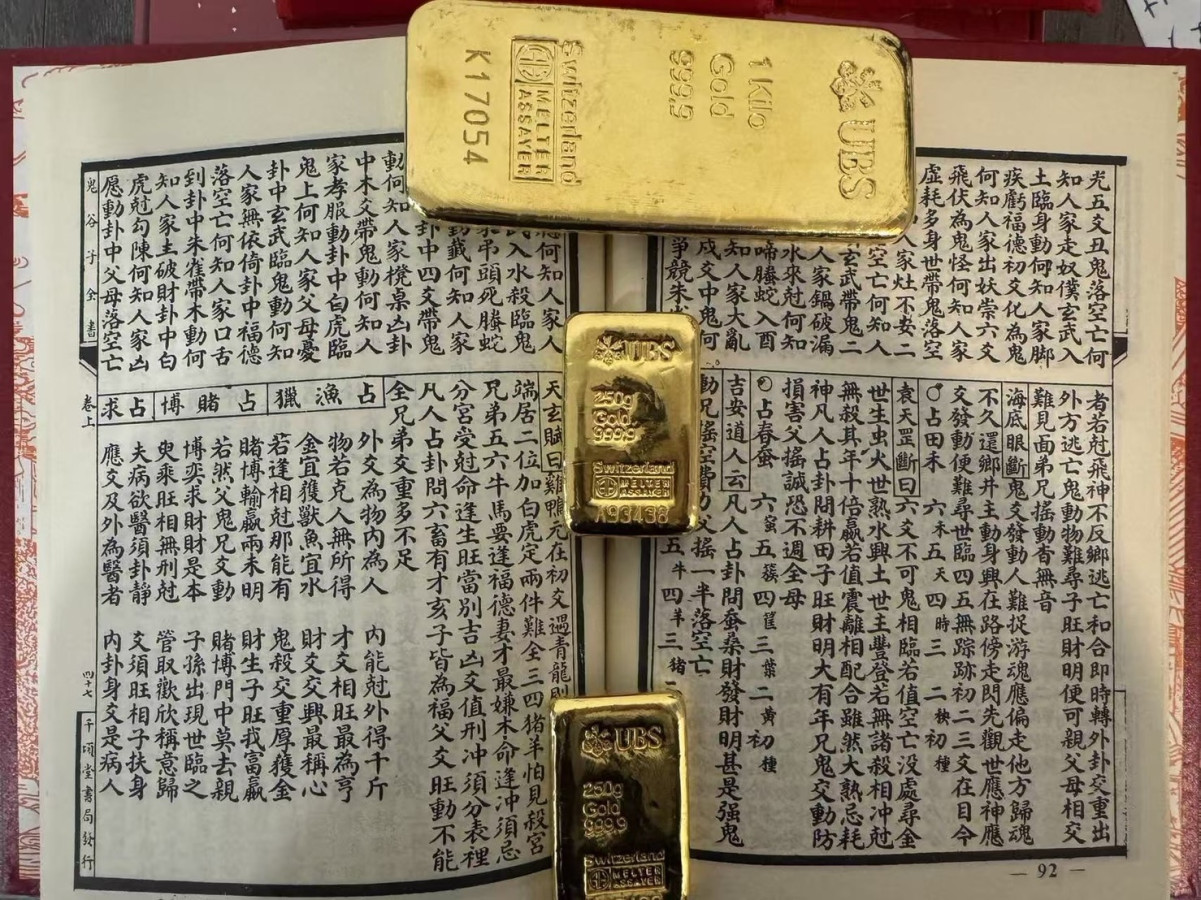 UBS
1 Kilo
Gold
999.9
Switzerland
MELTER
ASSAYER
K17054
UBS
250g
Gold
999.9
Switzerland
MELTER
ASSAYER
UBS
250g
Gold
999.9
Switzerland
MELTER
ASSAYER
光五爻丑鬼落空亡何
知人家走奴僕玄武入
土臨身動何知人家脚
疾虧福德初爻化為鬼
何知人家出妖祟六爻
飛伏為鬼怪何知人家
虛耗多身世帶鬼落空
人家灶不安二
空亡何知人
玄武帶鬼二
人家鍋破漏
水來尅何知
啼螣蛇入酉
知人家大亂
戌爻中鬼何
爭競朱
者若尅飛神不反鄉逃亡和合即時轉外卦交重出
外方逃亡鬼動物難尋子旺財明便可親父母相交
難見面弟兄搖動杳無音
海底眼斷鬼爻發動人難捉游魂應偏走他方歸魂
不久還鄉井主動身興在路傍走閃先觀世應神應
爻發動便難尋世臨四五無踪跡初二三爻在目今
占田禾 六木五天四時三 二秧初種
袁天罡斷曰六爻不可鬼相臨若值空亡没處尋金
世生虫火世熟水興土世主豐登若無諸殺相冲尅
無殺其年十倍贏若值震離相配合雖然大熟忌耗
神凡人占卦問耕田子旺財明大有年兄鬼交動防
損害父搖誠恐不週全母
占春蚕 六蚕五簇四筐三葉二黄初種
吉安道人云凡人占卦問蚕桑財發財明甚是强鬼
動兄搖空費力父搖一半落空亡
五牛四羊三猪
92
何知人家人
入水殺臨鬼
吊頭死螣蛇
動載何知人家
卦中四爻帶鬼
動何知人家櫈桌凶卦
中木爻帶鬼動何知人
家孝服動卦中白虎臨
鬼上何知人家父母憂
卦中玄武臨鬼動何知
人家無依倚卦中福德
落空亡何知人家口舌
到卦中朱雀帶木動何
知人家主破財卦中白
虎尅勾陳何知人家凶
愿動卦中父母落空亡
天玄賦曰雞鴨元在初爻過青龍
端居二位加白虎定兩件難全三四猪羊怕見殺宮
兄弟五六牛馬要逢福德妻才最嫌木命逢冲須忌
分宮受尅命逢生旺當別吉凶爻值刑冲須分表裡
凡人占卦問六畜有才亥子皆為福父爻旺動不能
全兄弟爻重多不足
占漁獵
外爻為物內為人 內能尅外得千斤
物若克人無所得 才爻相旺最為亨
金宜獲獸魚宜水 財爻交興最稱心
若逢相尅那能有 鬼殺交重厚獲金
占賭博
賭博輸贏兩未明 財生子旺我富贏
若然父鬼兄爻動 賭博門中莫去親
博奕求財財是本 子孫出現世臨之
臾乘旺相無刑尅 管取歡欣稱意歸
占求
夫病欲醫須卦靜 爻須旺相子扶身
應爻及外為醫者 內卦身爻是病人
鬼谷子全書
卷上
四十七
千頃堂書局發行